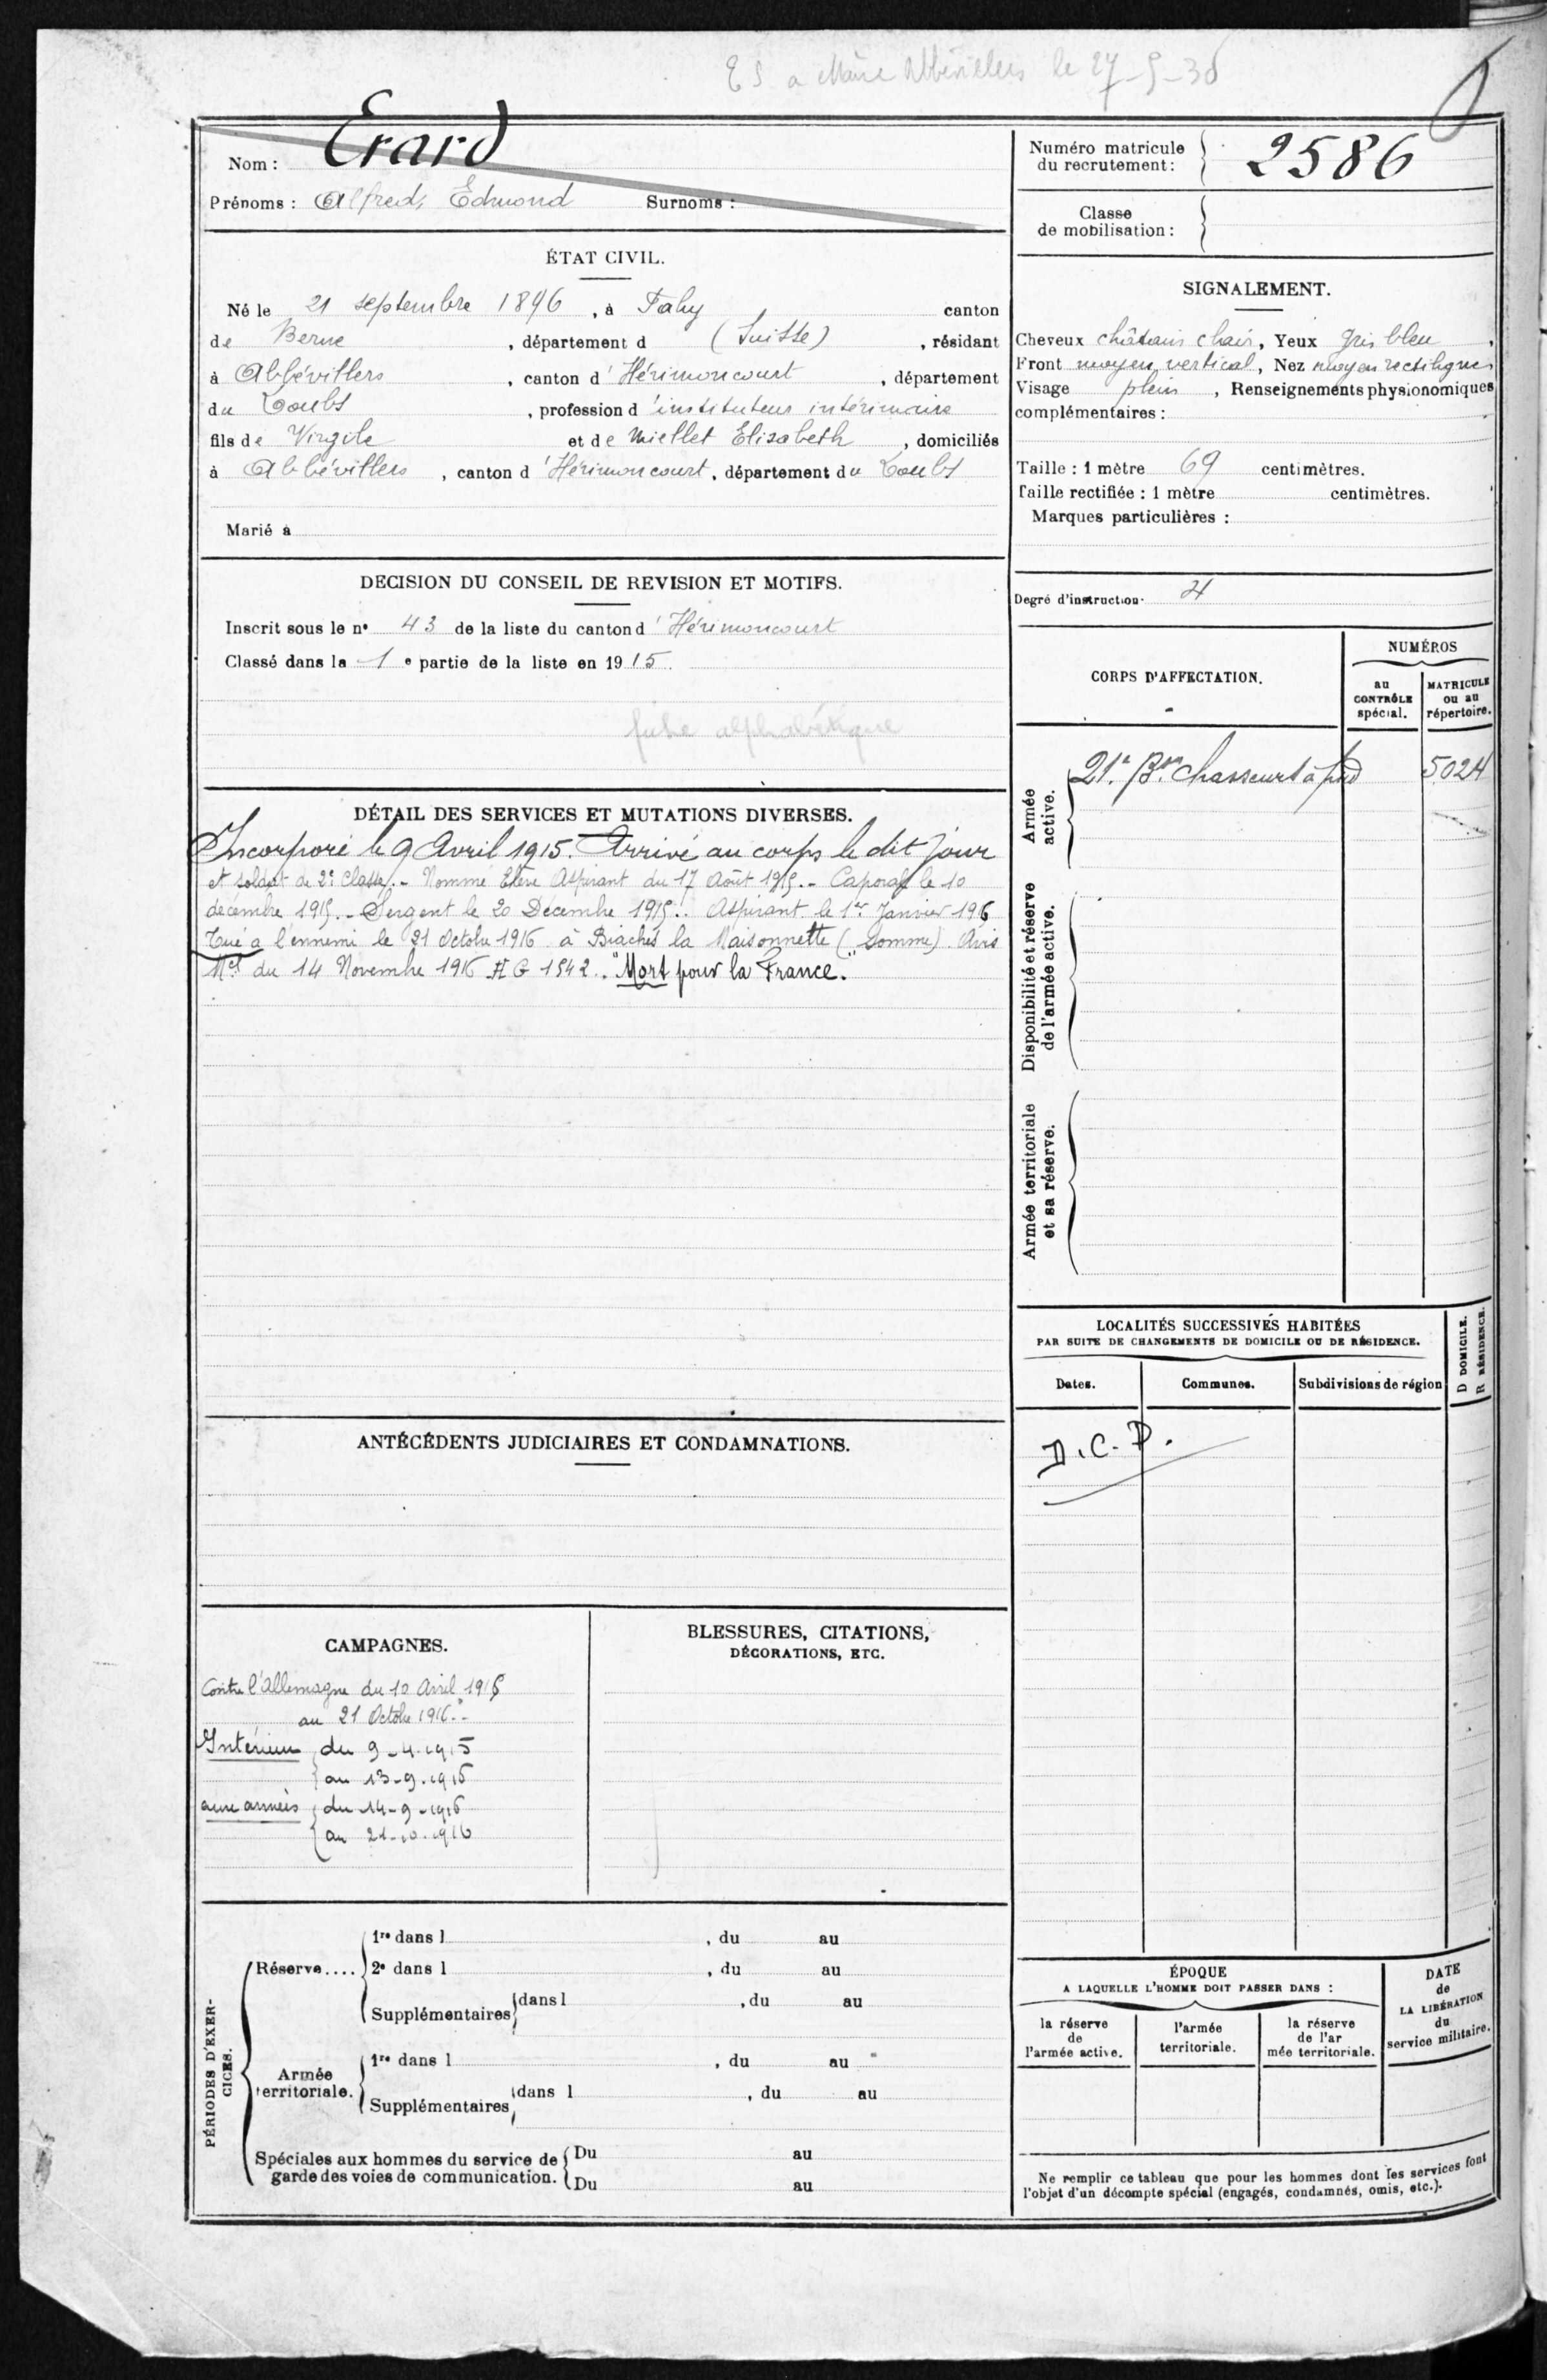 ES a Maire Abbévillers le 27-5-36
Nom : Erard
Prénoms : Alfred, Edmond Surnoms :
Numéro matricule du recrutement : 2586
Classe de mobilisation :
ÉTAT CIVIL.
Né le 21 septembre 1896, à Fahy canton
de Berne, département d (Suisse), résidant
à Abbévillers, canton d'Hérimoncourt, département
du Doubs, profession d'instituteur intérimaire
fils de Virgile et de Miellet Elisabeth, domiciliés
à Abbévillers, canton d'Hérimoncourt, département du Doubs
Marié à
SIGNALEMENT.
Cheveux châtains clairs, Yeux gris bleu,
Front moyen vertical, Nez moyen rectiligne
Visage plein, Renseignements physionomiques
complémentaires :
Taille : 1 mètre 69 centimètres.
Taille rectifiée : 1 mètre centimètres.
Marques particulières :
Degré d'instruction. 4
DECISION DU CONSEIL DE REVISION ET MOTIFS.
Inscrit sous le n° 43 de la liste du canton d'Hérimoncourt
Classé dans la 1e partie de la liste en 1915.
fiche alphabétique
DÉTAIL DES SERVICES ET MUTATIONS DIVERSES.
Incorporé le 9 Avril 1915. Arrivé au corps le dit jour
et soldat de 2e classe. - Nommé Elève Aspirant du 17 Août 1915. - Caporal le 10
décembre 1915. - Sergent le 20 Décembre 1915. - Aspirant le 1er Janvier 1916
Tué à l'ennemi le 21 Octobre 1916 à Biaches la Maisonnette (Somme). Avis
Mel du 14 Novembre 1916 HG 1842. "Mort pour la France."
CORPS D'AFFECTATION.
NUMÉROS
au CONTRÔLE spécial.
MATRICULE ou au répertoire.
Armée active.
21e Bon Chasseurs à pied 5024
Disponibilité et réserve de l'armée active.
Armée territoriale et sa réserve.
LOCALITÉS SUCCESSIVES HABITÉES
PAR SUITE DE CHANGEMENTS DE DOMICILE OU DE RÉSIDENCE.
Dates. Communes. Subdivisions de région
D DOMICILE.
R RÉSIDENCE.
D.C.P.
ANTÉCÉDENTS JUDICIAIRES ET CONDAMNATIONS.
CAMPAGNES.
Contre l'Allemagne du 10 Avril 1915
au 21 Octobre 1916.-
Intérieur du 9-4-1915
au 13-9-1916
aux armées du 14-9-1916
au 21-10-1916
BLESSURES, CITATIONS,
DÉCORATIONS, ETC.
PÉRIODES D'EXERCICES.
Réserve....
1re dans l , du au
2e dans l , du au
Supplémentaires dans l , du au
Armée territoriale.
1re dans l , du au
Supplémentaires dans l , du au
Spéciales aux hommes du service de
garde des voies de communication.
Du au
Du au
ÉPOQUE
A LAQUELLE L'HOMME DOIT PASSER DANS :
la réserve de l'armée active.
l'armée territoriale.
la réserve de l'armée territoriale.
DATE de LA LIBÉRATION du service militaire.
Ne remplir ce tableau que pour les hommes dont les services font
l'objet d'un décompte spécial (engagés, condamnés, omis, etc.).